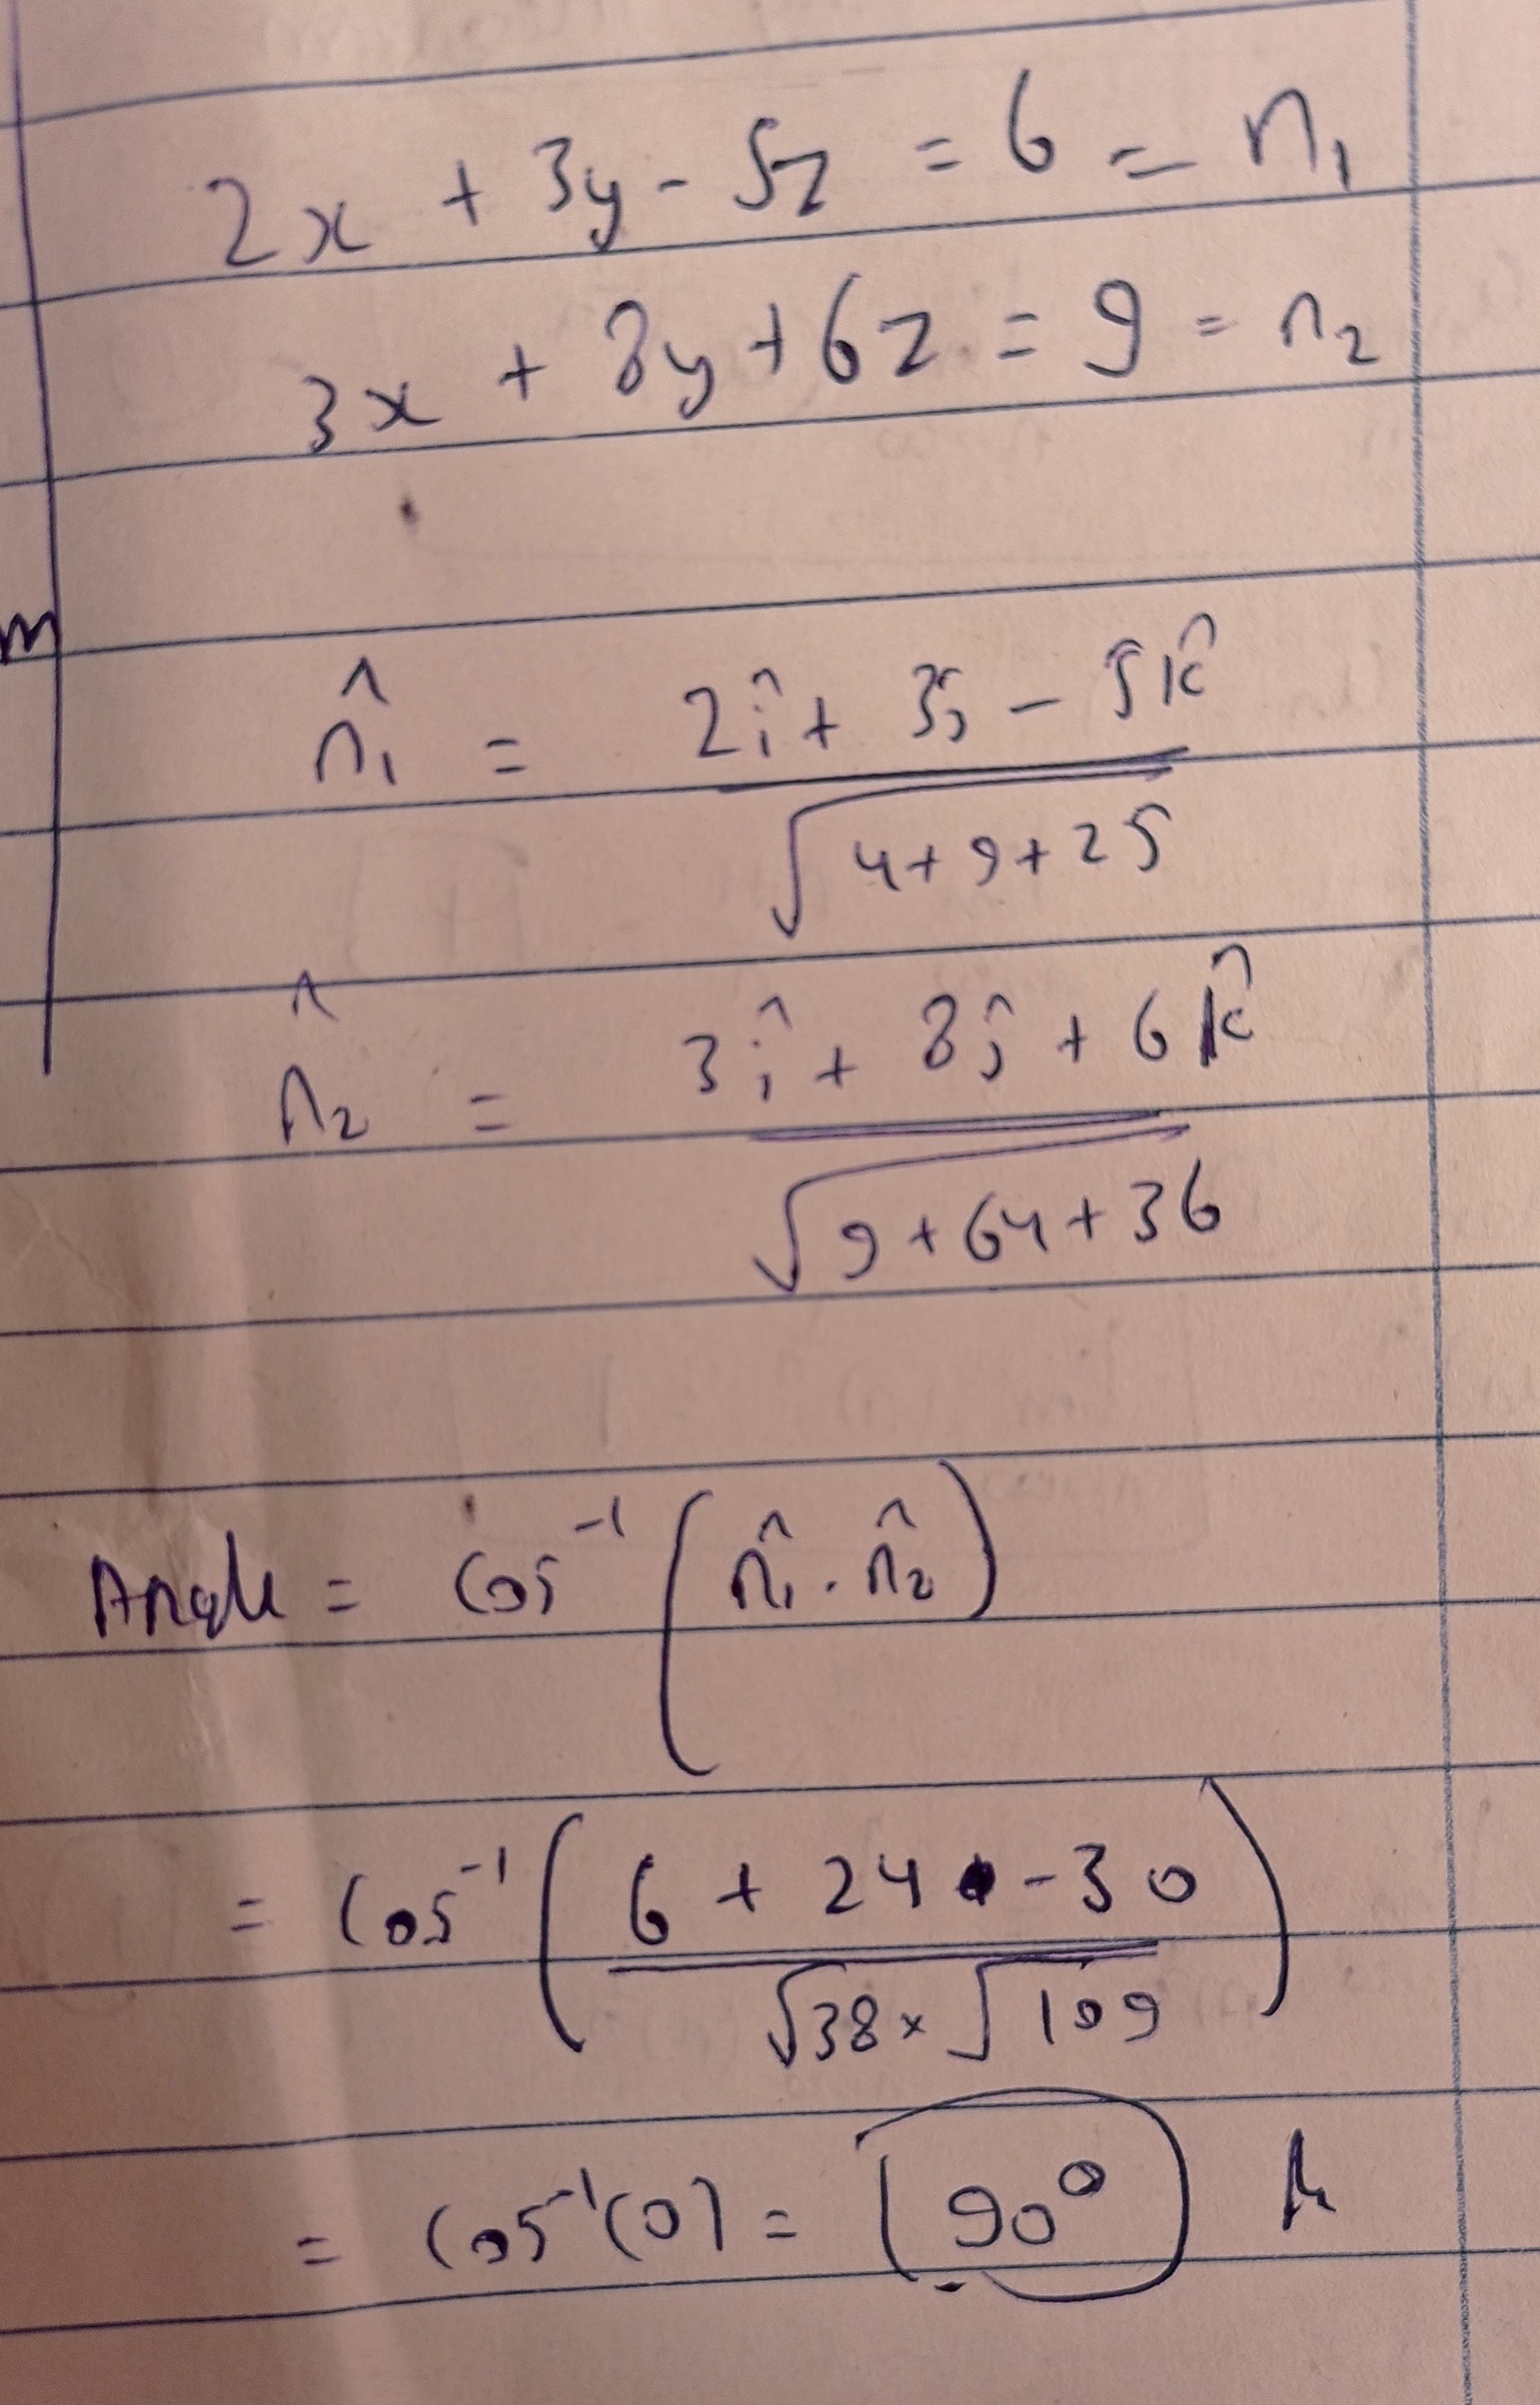 2x + 3y - 5z = 6 = n₁
3x + 8y + 6z = 9 = n₂
m
n̂₁ = (2î + 3ĵ - 5k̂) / √(4 + 9 + 25)
n̂₂ = (3î + 8ĵ + 6k̂) / √(9 + 64 + 36)
Angle = Cos⁻¹ (n̂₁ . n̂₂)
= Cos⁻¹ ((6 + 24 - 30) / (√38 × √109))
= Cos⁻¹(0) = 90°